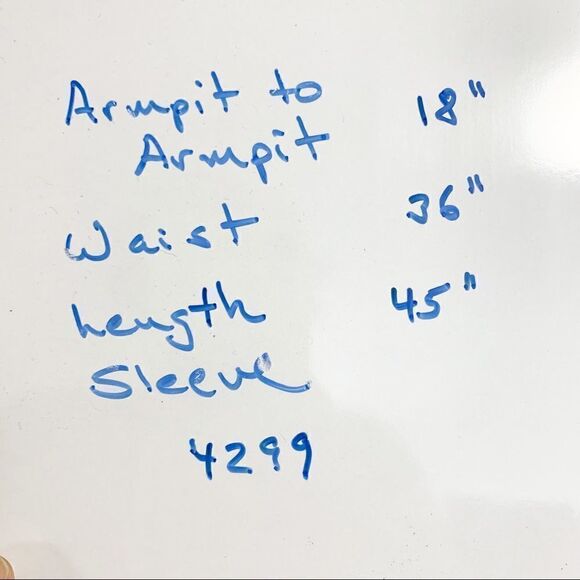 Armpit to
Armpit 18"
Waist 36"
Length 45"
Sleeve
4299